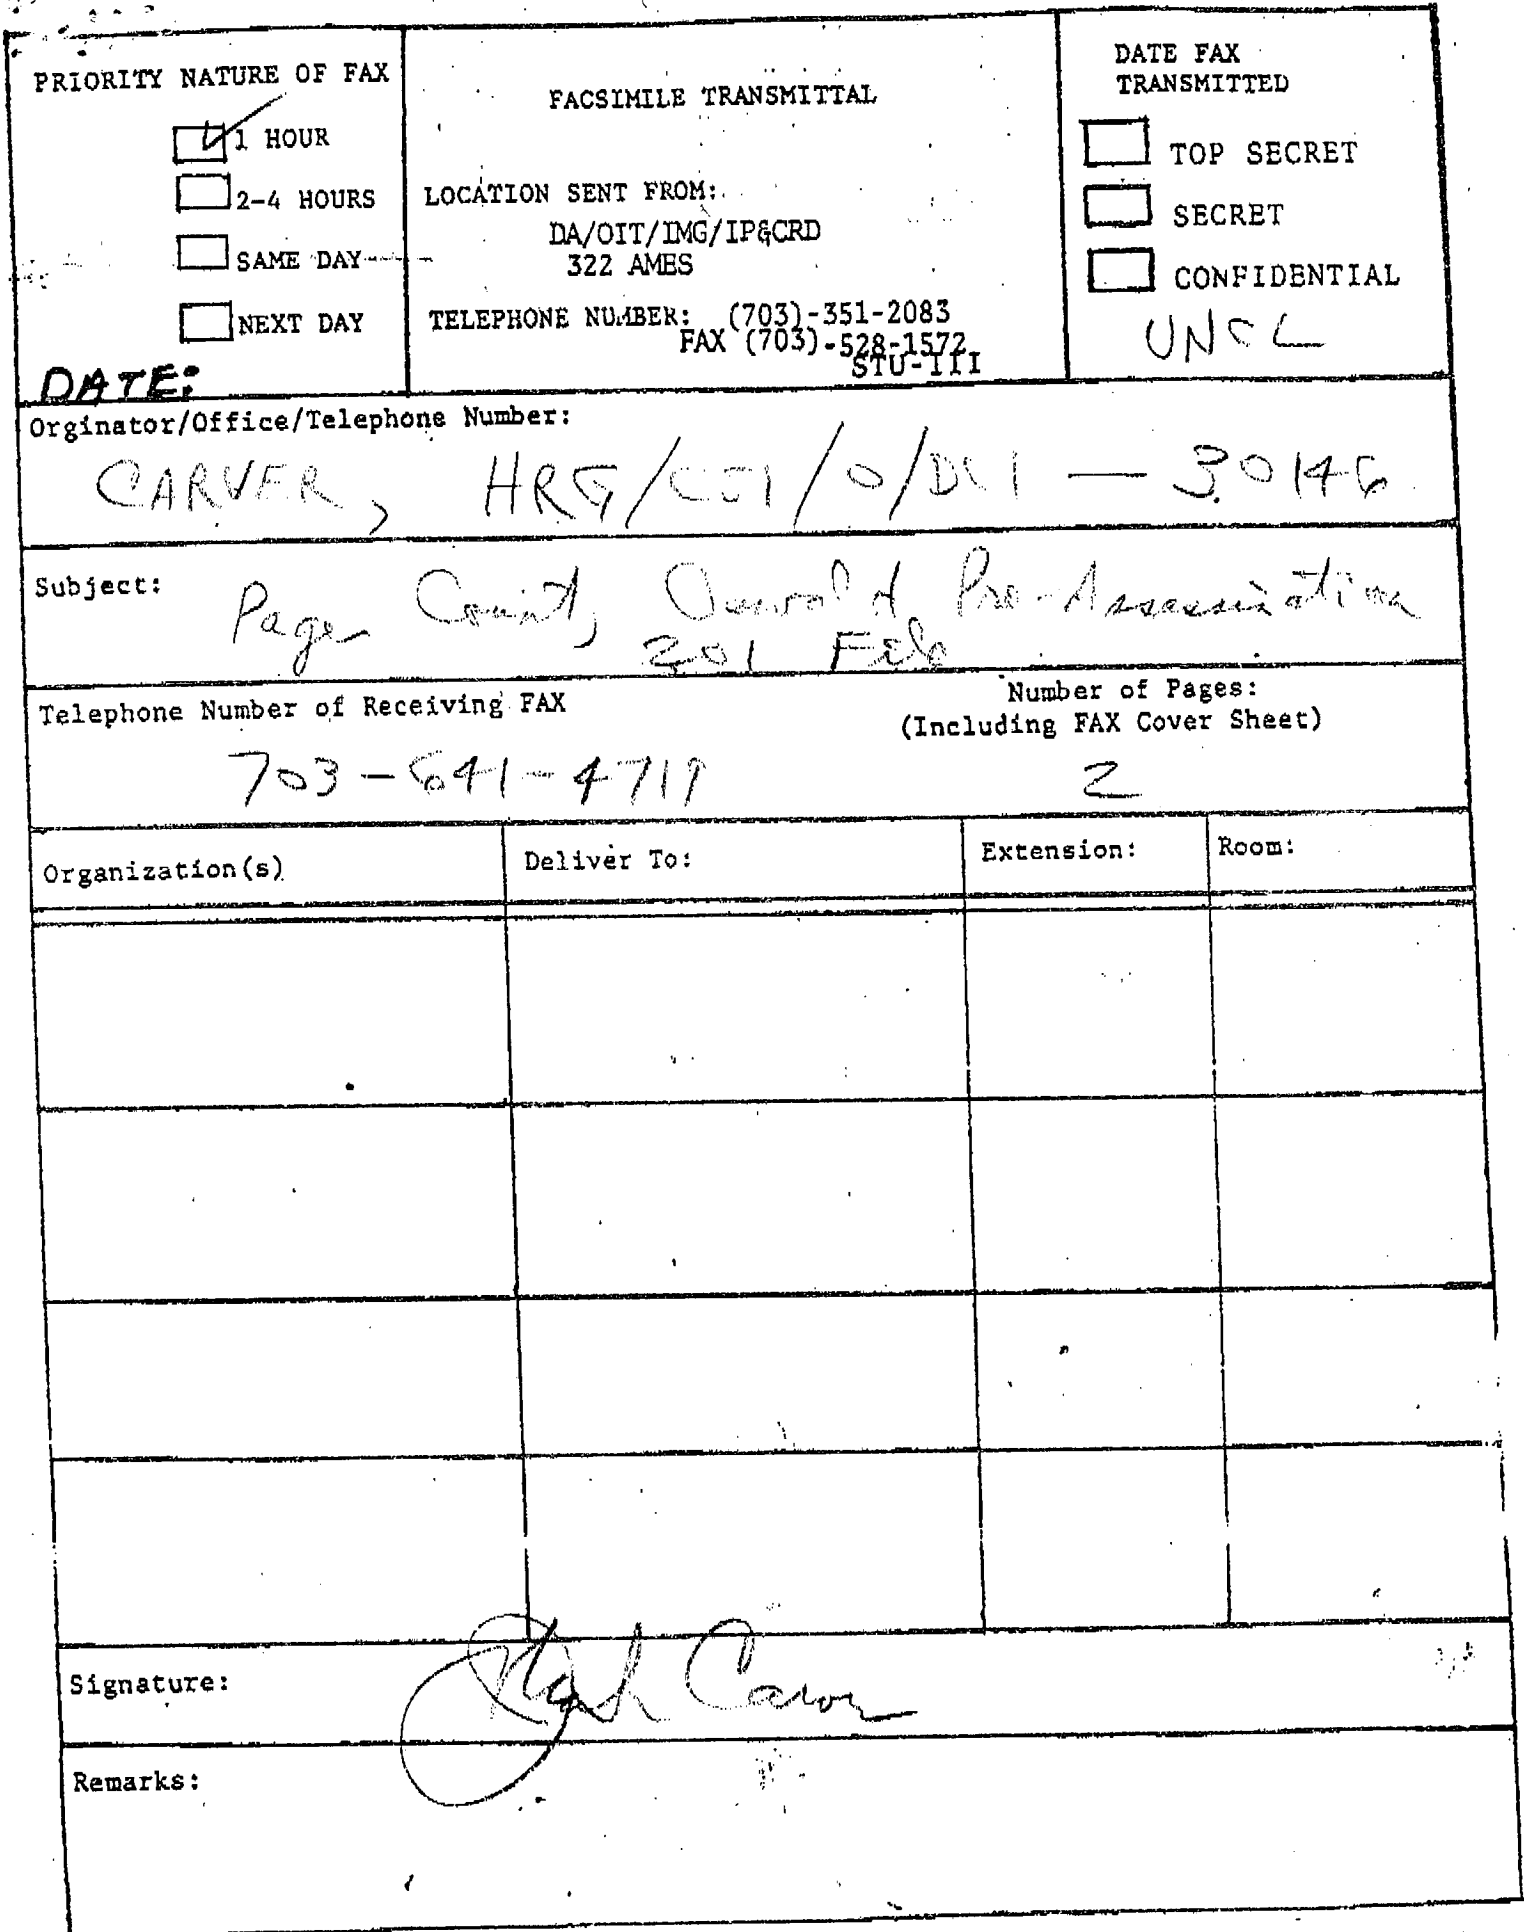 PRIORITY NATURE OF FAX
1 HOUR
2-4 HOURS
SAME DAY
NEXT DAY
DATE:
FACSIMILE TRANSMITTAL
LOCATION SENT FROM:
DA/OIT/IMG/IP&CRD
322 AMES
TELEPHONE NUMBER: (703)-351-2083
FAX (703)-528-1572
STU-III
DATE FAX
TRANSMITTED
TOP SECRET
SECRET
CONFIDENTIAL
UNCL
Orginator/Office/Telephone Number:
CARVER, HRG/CSI/O/DCI — 30146
Subject:
Page Count, Oswald Pre-Assassination
201 File
Telephone Number of Receiving FAX
703-641-4719
Number of Pages:
(Including FAX Cover Sheet)
2
Organization(s)
Deliver To:
Extension:
Room:
Signature:
Carver
Remarks: